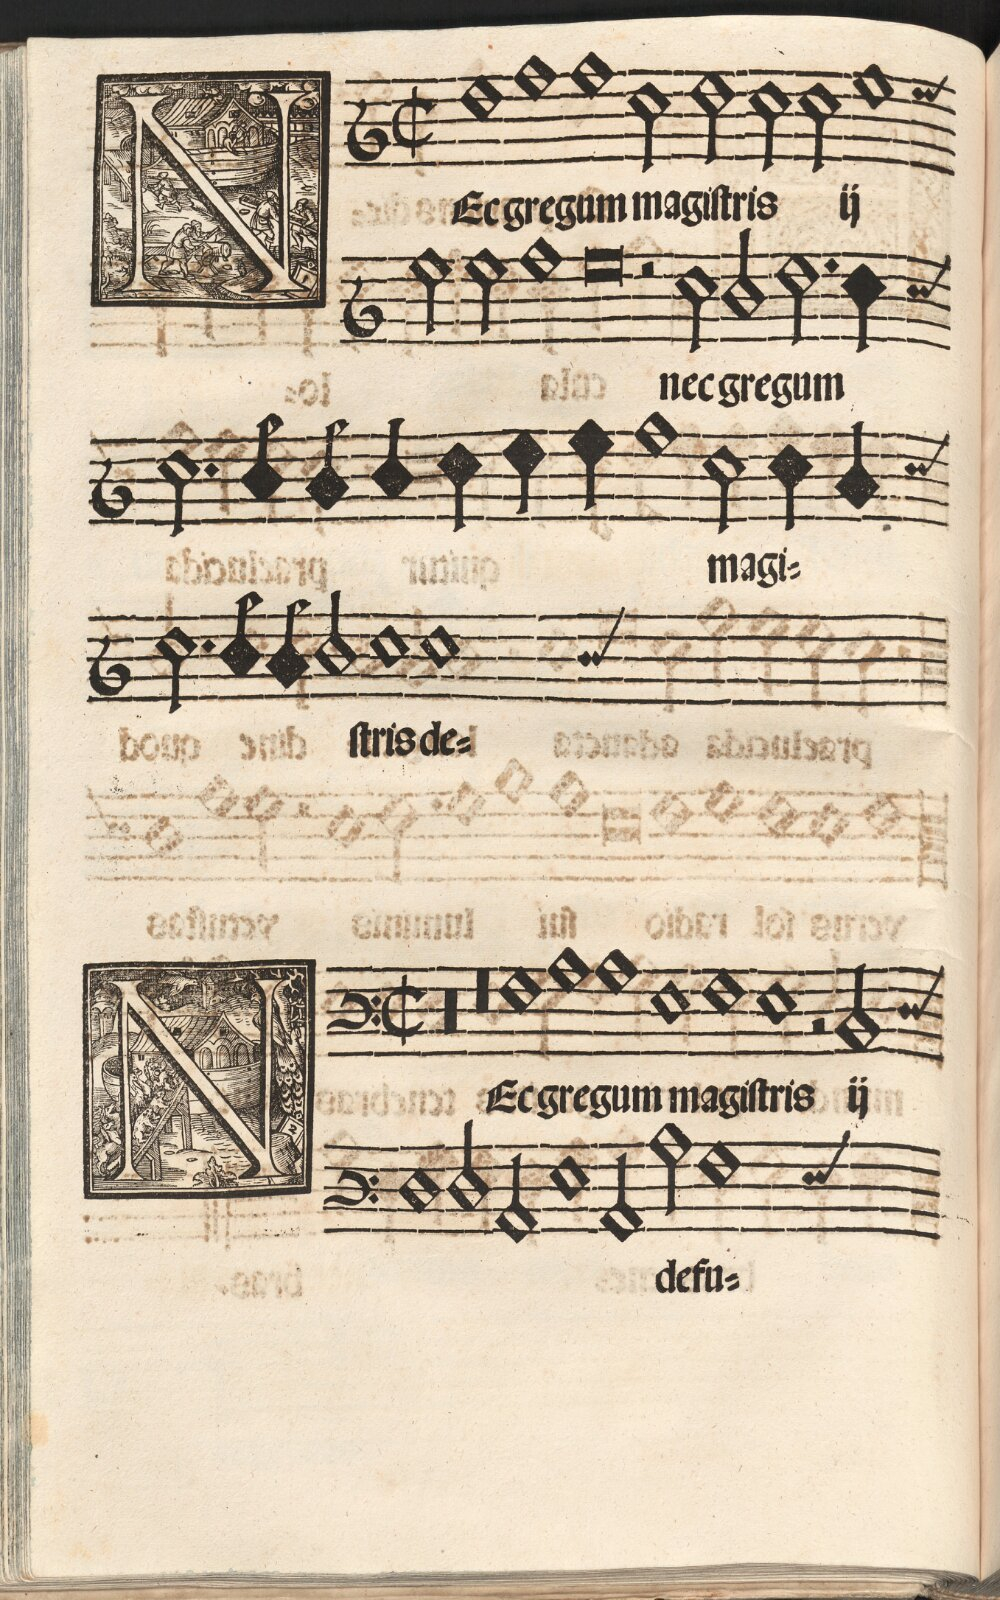 NEc gregum magistris ij
nec gregum
magi-
stris de-
NEc gregum magistris ij
defu-